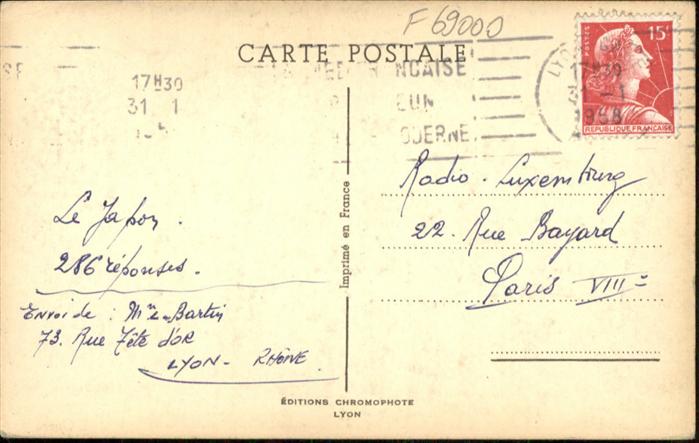 F 69000
CARTE POSTALE
15F
POSTES
17H30
31 1
17H30
1958
NCAISE
ODERNE
REPUBLIQUE FRANCAISE
Le Japon.
286 réponses.
Envoi de : Mme Bartin
73. Rue Tête d'or
LYON - RHÔNE.
Imprimé en France
Radio - Luxembourg
22. Rue Bayard
Paris VIII=
ÉDITIONS CHROMOPHOTE
LYON